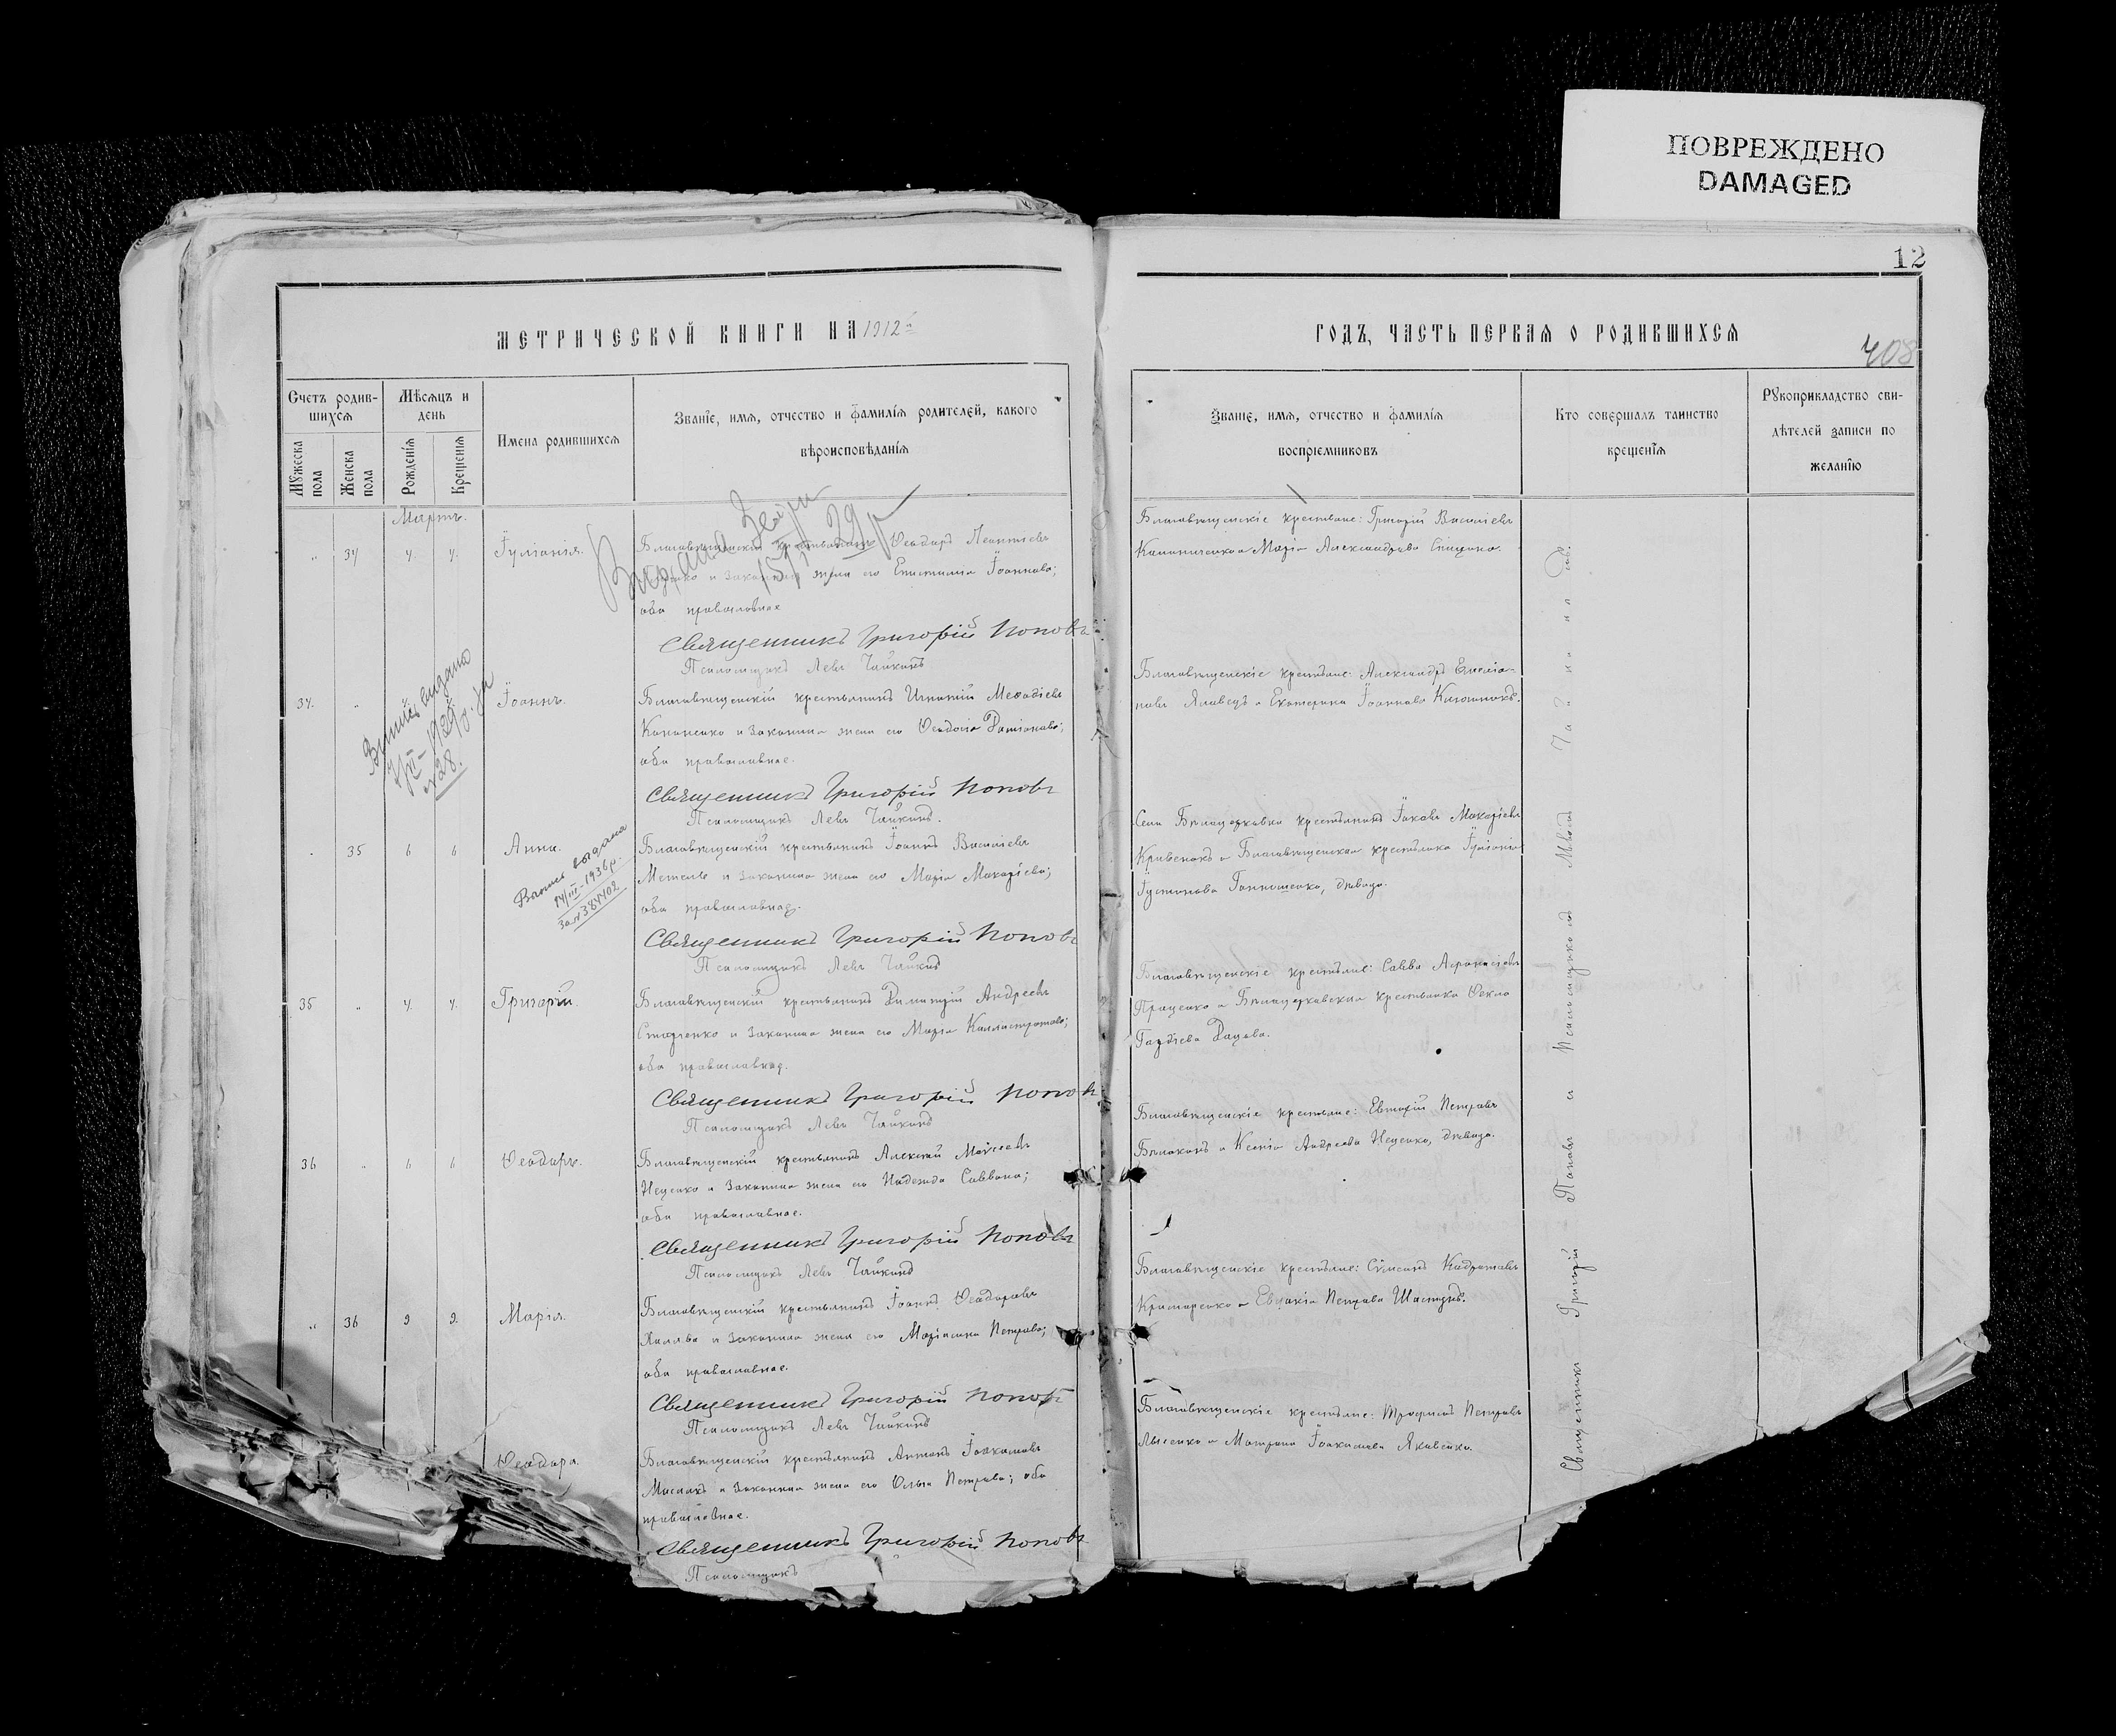 ПОВРЕЖДЕНО
DAMAGED
12
МЕТРИЧЕСКОЙ КНИГИ НА 1912й
ГОДЪ, ЧАСТЬ ПЕРВАЯ О РОДИВШИХСЯ
408
Счетъ родив-
шихся
Мѣсяцъ и
день
Мужеска
пола
Женска
пола
Рожденія
Крещенія
Имена родившихся
Званіе, имя, отчество и фамилія родителей, какого
вѣроисповѣданія
Званіе, имя, отчество и фамилія
воспріемниковъ
Кто совершалъ таинство
крещенія
Рукоприкладство сви-
дѣтелей записи по
желанію
Мартъ.
„ 34 4. 4. Іуліанія.
Благовѣщенскій крестьянинъ Ѳеодоръ Леонтіевъ
и законная жена его Епистимія Іоаннова;
оба православные
Священникъ Григорій Поповъ
Псаломщикъ Левъ Чайкинъ
Благовѣщенскіе крестьяне: Григорій Василіевъ
и Марія Александрова
34. „ Іоаннъ.
Витяг видано
1929 р.
№28.
Благовѣщенскій крестьянинъ Игнатій Меѳодіевъ
Кононенко и законная жена его Ѳеодосія Даміанова;
оба православные.
Священникъ Григорій Поповъ
Псаломщикъ Левъ Чайкинъ.
Благовѣщенскіе крестьяне: Александръ Емеліа-
новъ Яловецъ и Екатерина Іоаннова
„ 35 6 6 Анна.
14/III-1936 г.
за №384402
Благовѣщенскій крестьянинъ Іоаннъ Василіевъ
и законная жена его Марія Макаріева;
оба православные.
Священникъ Григорій Поповъ
Псаломщикъ Левъ Чайкинъ
Села Бѣлоцерковки крестьянинъ Іаковъ Макаріевъ
Кривенокъ и Благовѣщенская крестьянка Іуліанія
Іустинова дѣвица.
35 „ 4. 4. Григорій.
Благовѣщенскій крестьянинъ Димитрій Андреевъ
и законная жена его Марія Каллистратова;
оба православные.
Священникъ Григорій Поповъ
Псаломщикъ Левъ Чайкинъ
Благовѣщенскіе крестьяне: Савва Аѳанасіевъ
Проценко и Бѣлоцерковская крестьянка Ѳекла
36 „ 6 6 Ѳеодоръ.
Благовѣщенскій крестьянинъ Алексій Моисеевъ
Неценко и законная жена его Надежда Саввина;
оба православные.
Священникъ Григорій Поповъ
Псаломщикъ Левъ Чайкинъ
Благовѣщенскіе крестьяне: Евтихій Петровъ
и Ксенія Андреева Неценко, дѣвица.
„ 36 9 9. Марія.
Благовѣщенскій крестьянинъ Іоаннъ Ѳеодоровъ
Халява и законная жена его Маріамна Петрова;
оба православные.
Священникъ Григорій Поповъ
Псаломщикъ Левъ Чайкинъ
Благовѣщенскіе крестьяне: Сумеонъ Кодратовъ
и Евдокія Петрова
Ѳеодора.
Благовѣщенскій крестьянинъ Антонъ Іоакимовъ
и законная жена его Ольга Петрова; оба
православные.
Священникъ Григорій Поповъ
Псаломщикъ
Благовѣщенскіе крестьяне: Трофимъ Петровъ
Лысенко и Матрона Іоакимова Яковенко.
Священникъ Григорій Поповъ и Псаломщикъ Левъ Чайкинъ